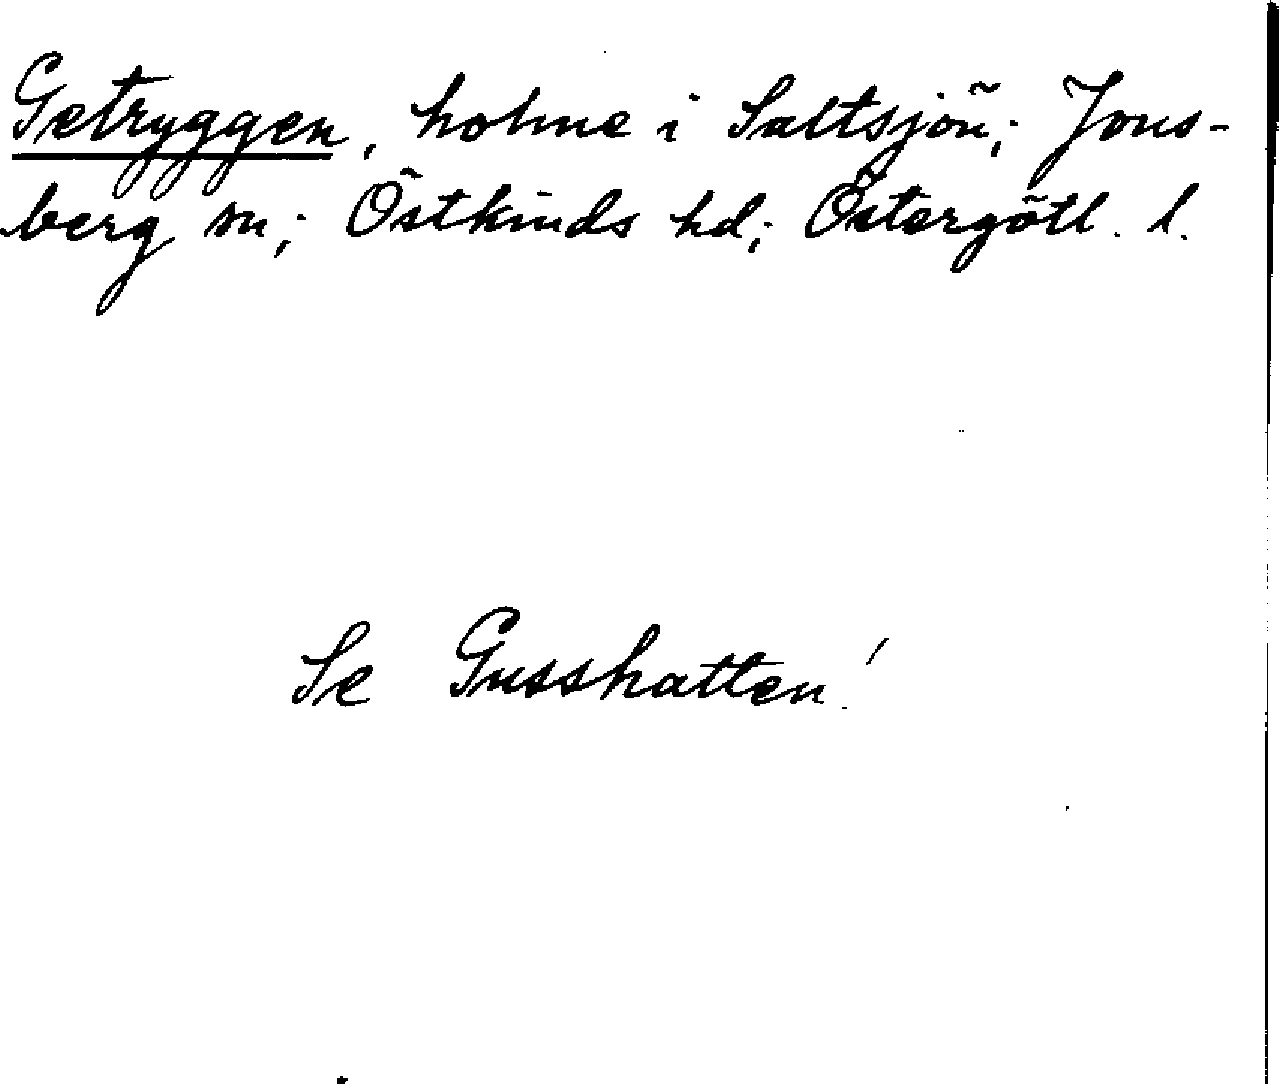 Getryggen, holme i Saltsjön; Jons-
berg sn; Östkinds hd; Östergötl. l.
Se Gusshatten!